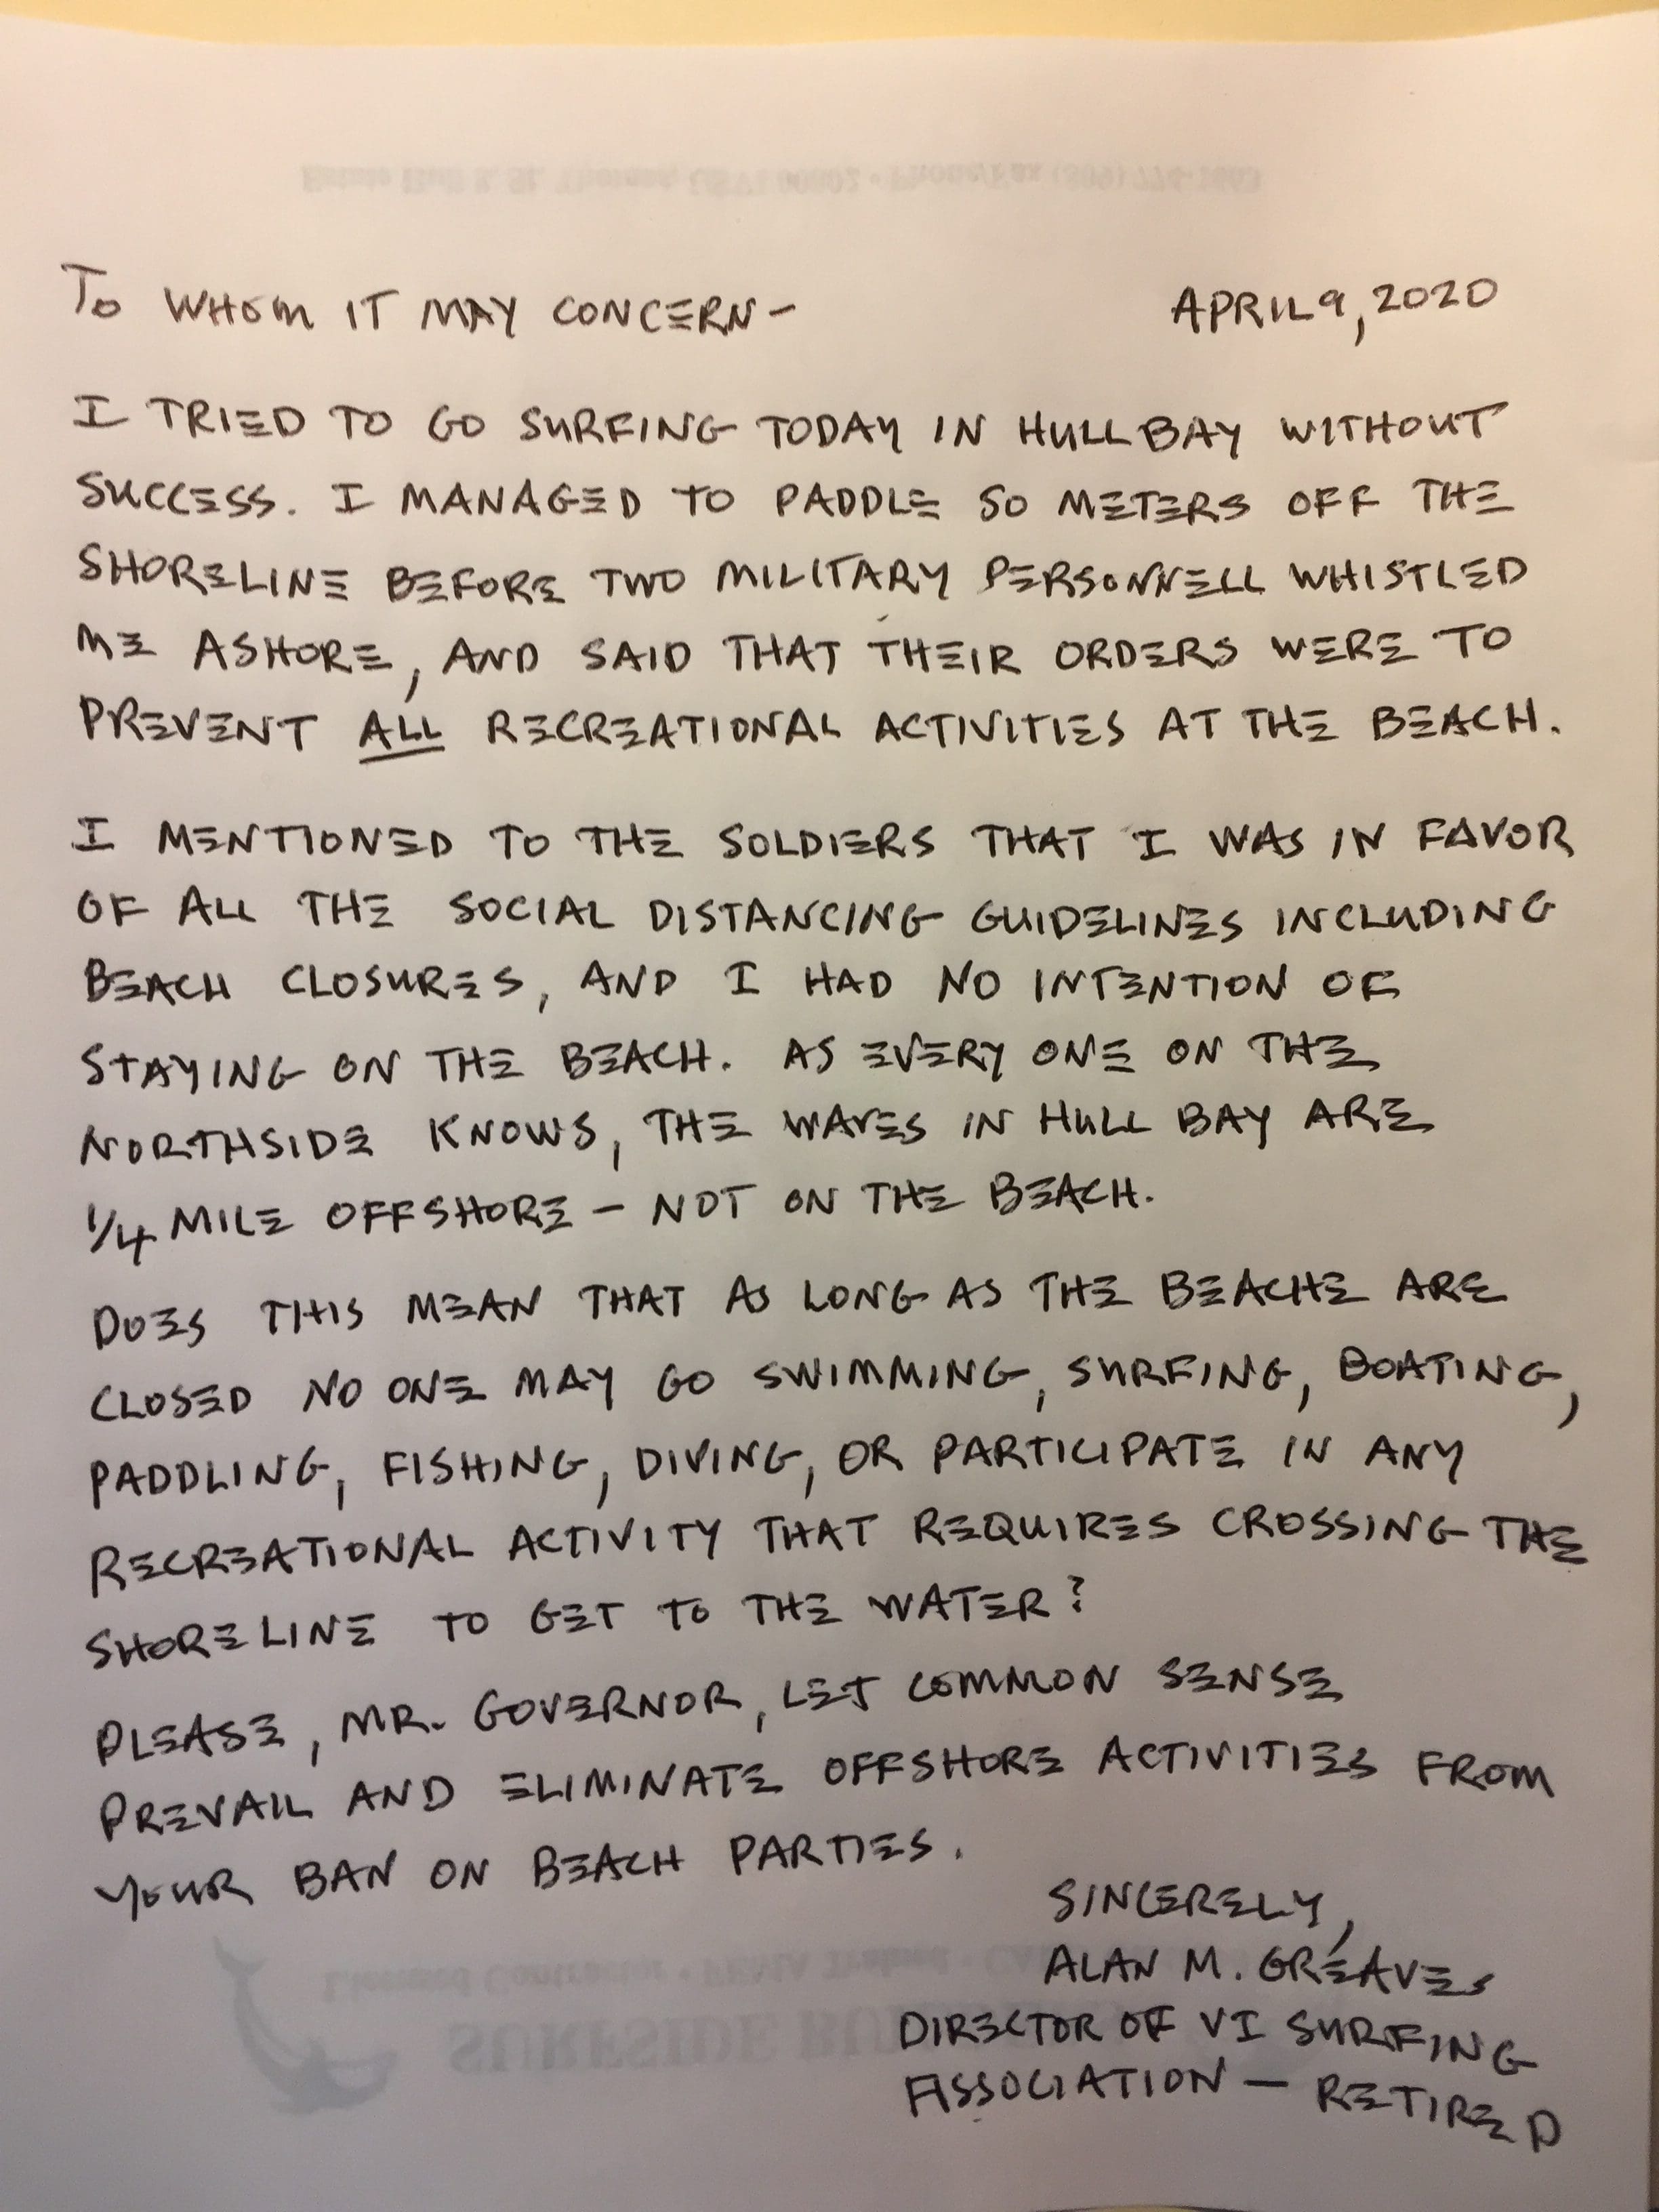 TO WHOM IT MAY CONCERN- APRIL 9, 2020
I TRIED TO GO SURFING TODAY IN HULL BAY WITHOUT
SUCCESS. I MANAGED TO PADDLE 50 METERS OFF THE
SHORELINE BEFORE TWO MILITARY PERSONNELL WHISTLED
ME ASHORE, AND SAID THAT THEIR ORDERS WERE TO
PREVENT ALL RECREATIONAL ACTIVITIES AT THE BEACH.
I MENTIONED TO THE SOLDIERS THAT I WAS IN FAVOR
OF ALL THE SOCIAL DISTANCING GUIDELINES INCLUDING
BEACH CLOSURES, AND I HAD NO INTENTION OF
STAYING ON THE BEACH. AS EVERY ONE ON THE
NORTHSIDE KNOWS, THE WAVES IN HULL BAY ARE
1/4 MILE OFFSHORE - NOT ON THE BEACH.
DOES THIS MEAN THAT AS LONG AS THE BEACHE ARE
CLOSED NO ONE MAY GO SWIMMING, SURFING, BOATING,
PADDLING, FISHING, DIVING, OR PARTICIPATE IN ANY
RECREATIONAL ACTIVITY THAT REQUIRES CROSSING THE
SHORELINE TO GET TO THE WATER?
PLEASE, MR. GOVERNOR, LET COMMON SENSE
PREVAIL AND ELIMINATE OFFSHORE ACTIVITIES FROM
YOUR BAN ON BEACH PARTIES.
SINCERELY,
ALAN M. GREAVES
DIRECTOR OF VI SURFING
ASSOCIATION - RETIRED
Licensed Contractor • FEMA Trained
SURFSIDE